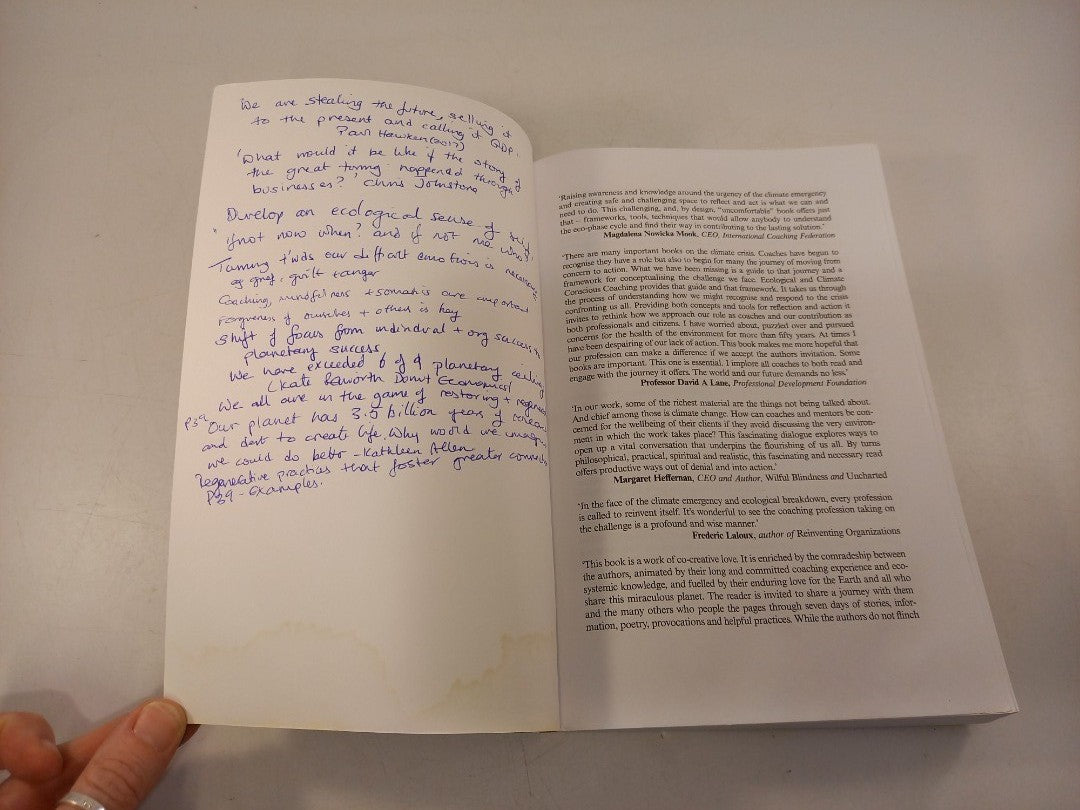 We are stealing the future, selling it
to the present and calling it GDP.
Paul Hawken (2017)
'What would it be like if the story of
the great turning happened through
businesses?' Chris Johnstone
Develop an ecological sense of self.
"If not now when? and if not me who?
Turning t'wds our difficult emotions is necessary
eg grief, guilt + anger
Coaching, mindfulness + somatics are important
Forgiveness of ourselves + others is key
Shift of focus from individual + org success to
planetary success
We have exceeded 6 of 9 planetary ceilings
(Kate Raworth Donut Economics)
We all are in the game of restoring + regenerate
P39 "Our planet has 3.5 billion years of
and to create life. Why would we imagine
we could do better - Kathleen Allen
Regenerative practices that foster greater
P39 - Examples.
'Raising awareness and knowledge around the urgency of the climate emergency
and creating safe and challenging space to reflect and act is what we can and
need to do. This challenging, and, by design, "uncomfortable" book offers just
that – frameworks, tools, techniques that would allow anybody to understand
the eco-phase cycle and find their way in contributing to the lasting solution.'
Magdalena Nowicka Mook, CEO, International Coaching Federation
'There are many important books on the climate crisis. Coaches have begun to
recognise they have a role but also to begin for many the journey of moving from
concern to action. What we have been missing is a guide to that journey and a
framework for conceptualising the challenge we face. Ecological and Climate
Conscious Coaching provides that guide and that framework. It takes us through
the process of understanding how we might recognise and respond to the crisis
confronting us all. Providing both concepts and tools for reflection and action it
invites to rethink how we approach our role as coaches and our contribution as
both professionals and citizens. I have worried about, puzzled over and pursued
concerns for the health of the environment for more than fifty years. At times I
have been despairing of our lack of action. This book makes me more hopeful that
our profession can make a difference if we accept the authors invitation. Some
books are important. This one is essential. I implore all coaches to both read and
engage with the journey it offers. The world and our future demands no less.'
Professor David A Lane, Professional Development Foundation
'In our work, some of the richest material are the things not being talked about.
And chief among those is climate change. How can coaches and mentors be con-
cerned for the wellbeing of their clients if they avoid discussing the very environ-
ment in which the work takes place? This fascinating dialogue explores ways to
open up a vital conversation that underpins the flourishing of us all. By turns
philosophical, practical, spiritual and realistic, this fascinating and necessary read
offers productive ways out of denial and into action.'
Margaret Heffernan, CEO and Author, Wilful Blindness and Uncharted
'In the face of the climate emergency and ecological breakdown, every profession
is called to reinvent itself. It's wonderful to see the coaching profession taking on
the challenge is a profound and wise manner.'
Frederic Laloux, author of Reinventing Organizations
'This book is a work of co-creative love. It is enriched by the comradeship between
the authors, animated by their long and committed coaching experience and eco-
systemic knowledge, and fuelled by their enduring love for the Earth and all who
share this miraculous planet. The reader is invited to share a journey with them
and the many others who people the pages through seven days of stories, infor-
mation, poetry, provocations and helpful practices. While the authors do not flinch